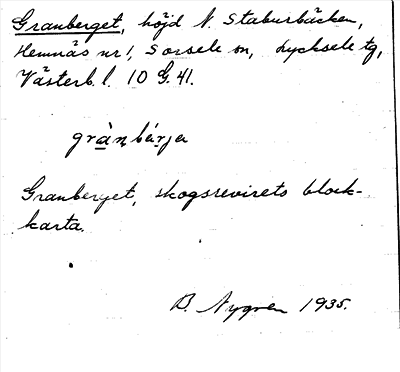 Granberget, höjd N. Staburbäcken,
Hemnäs nr 1, Sorsele sn, Lycksele tg,
Västerb. l. 10 G. 41.
grànbárja
Granberget, skogsrevirets block-
karta.
B. Nygren 1935.